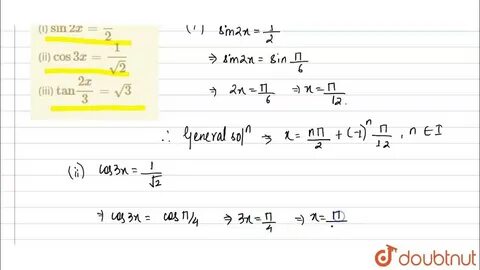 (i) sin 2x = 1/2
(ii) cos 3x = 1/√2
(iii) tan 2x/3 = √3
(i) sin2x = 1/2
⇒ sin2x = sin π/6
⇒ 2x = π/6 ⇒ x = π/12.
∴ General solⁿ ⇒ x = nπ/2 + (-1)ⁿ π/12 , n ∈ I
(ii) cos3x = 1/√2
⇒ cos3x = cos π/4 ⇒ 3x = π/4 ⇒ x = π/
doubtnut